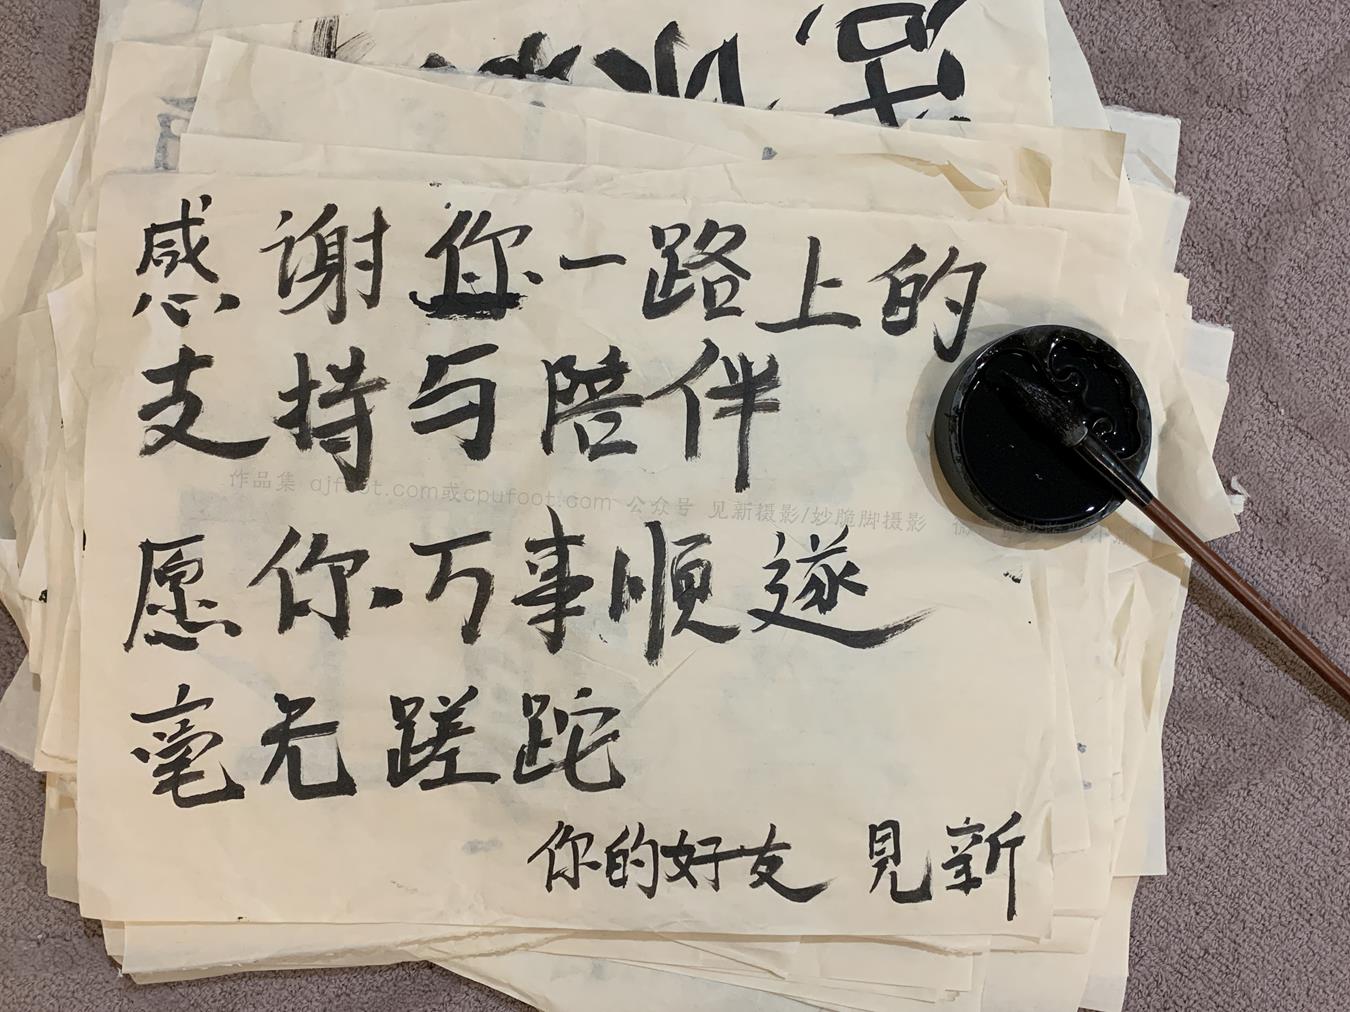 感谢您一路上的
支持与陪伴
作品集 ajfoot.com或cpufoot.com 公众号 见新摄影/妙脆脚摄影
愿你万事顺遂
毫无蹉跎
你的好友 见新